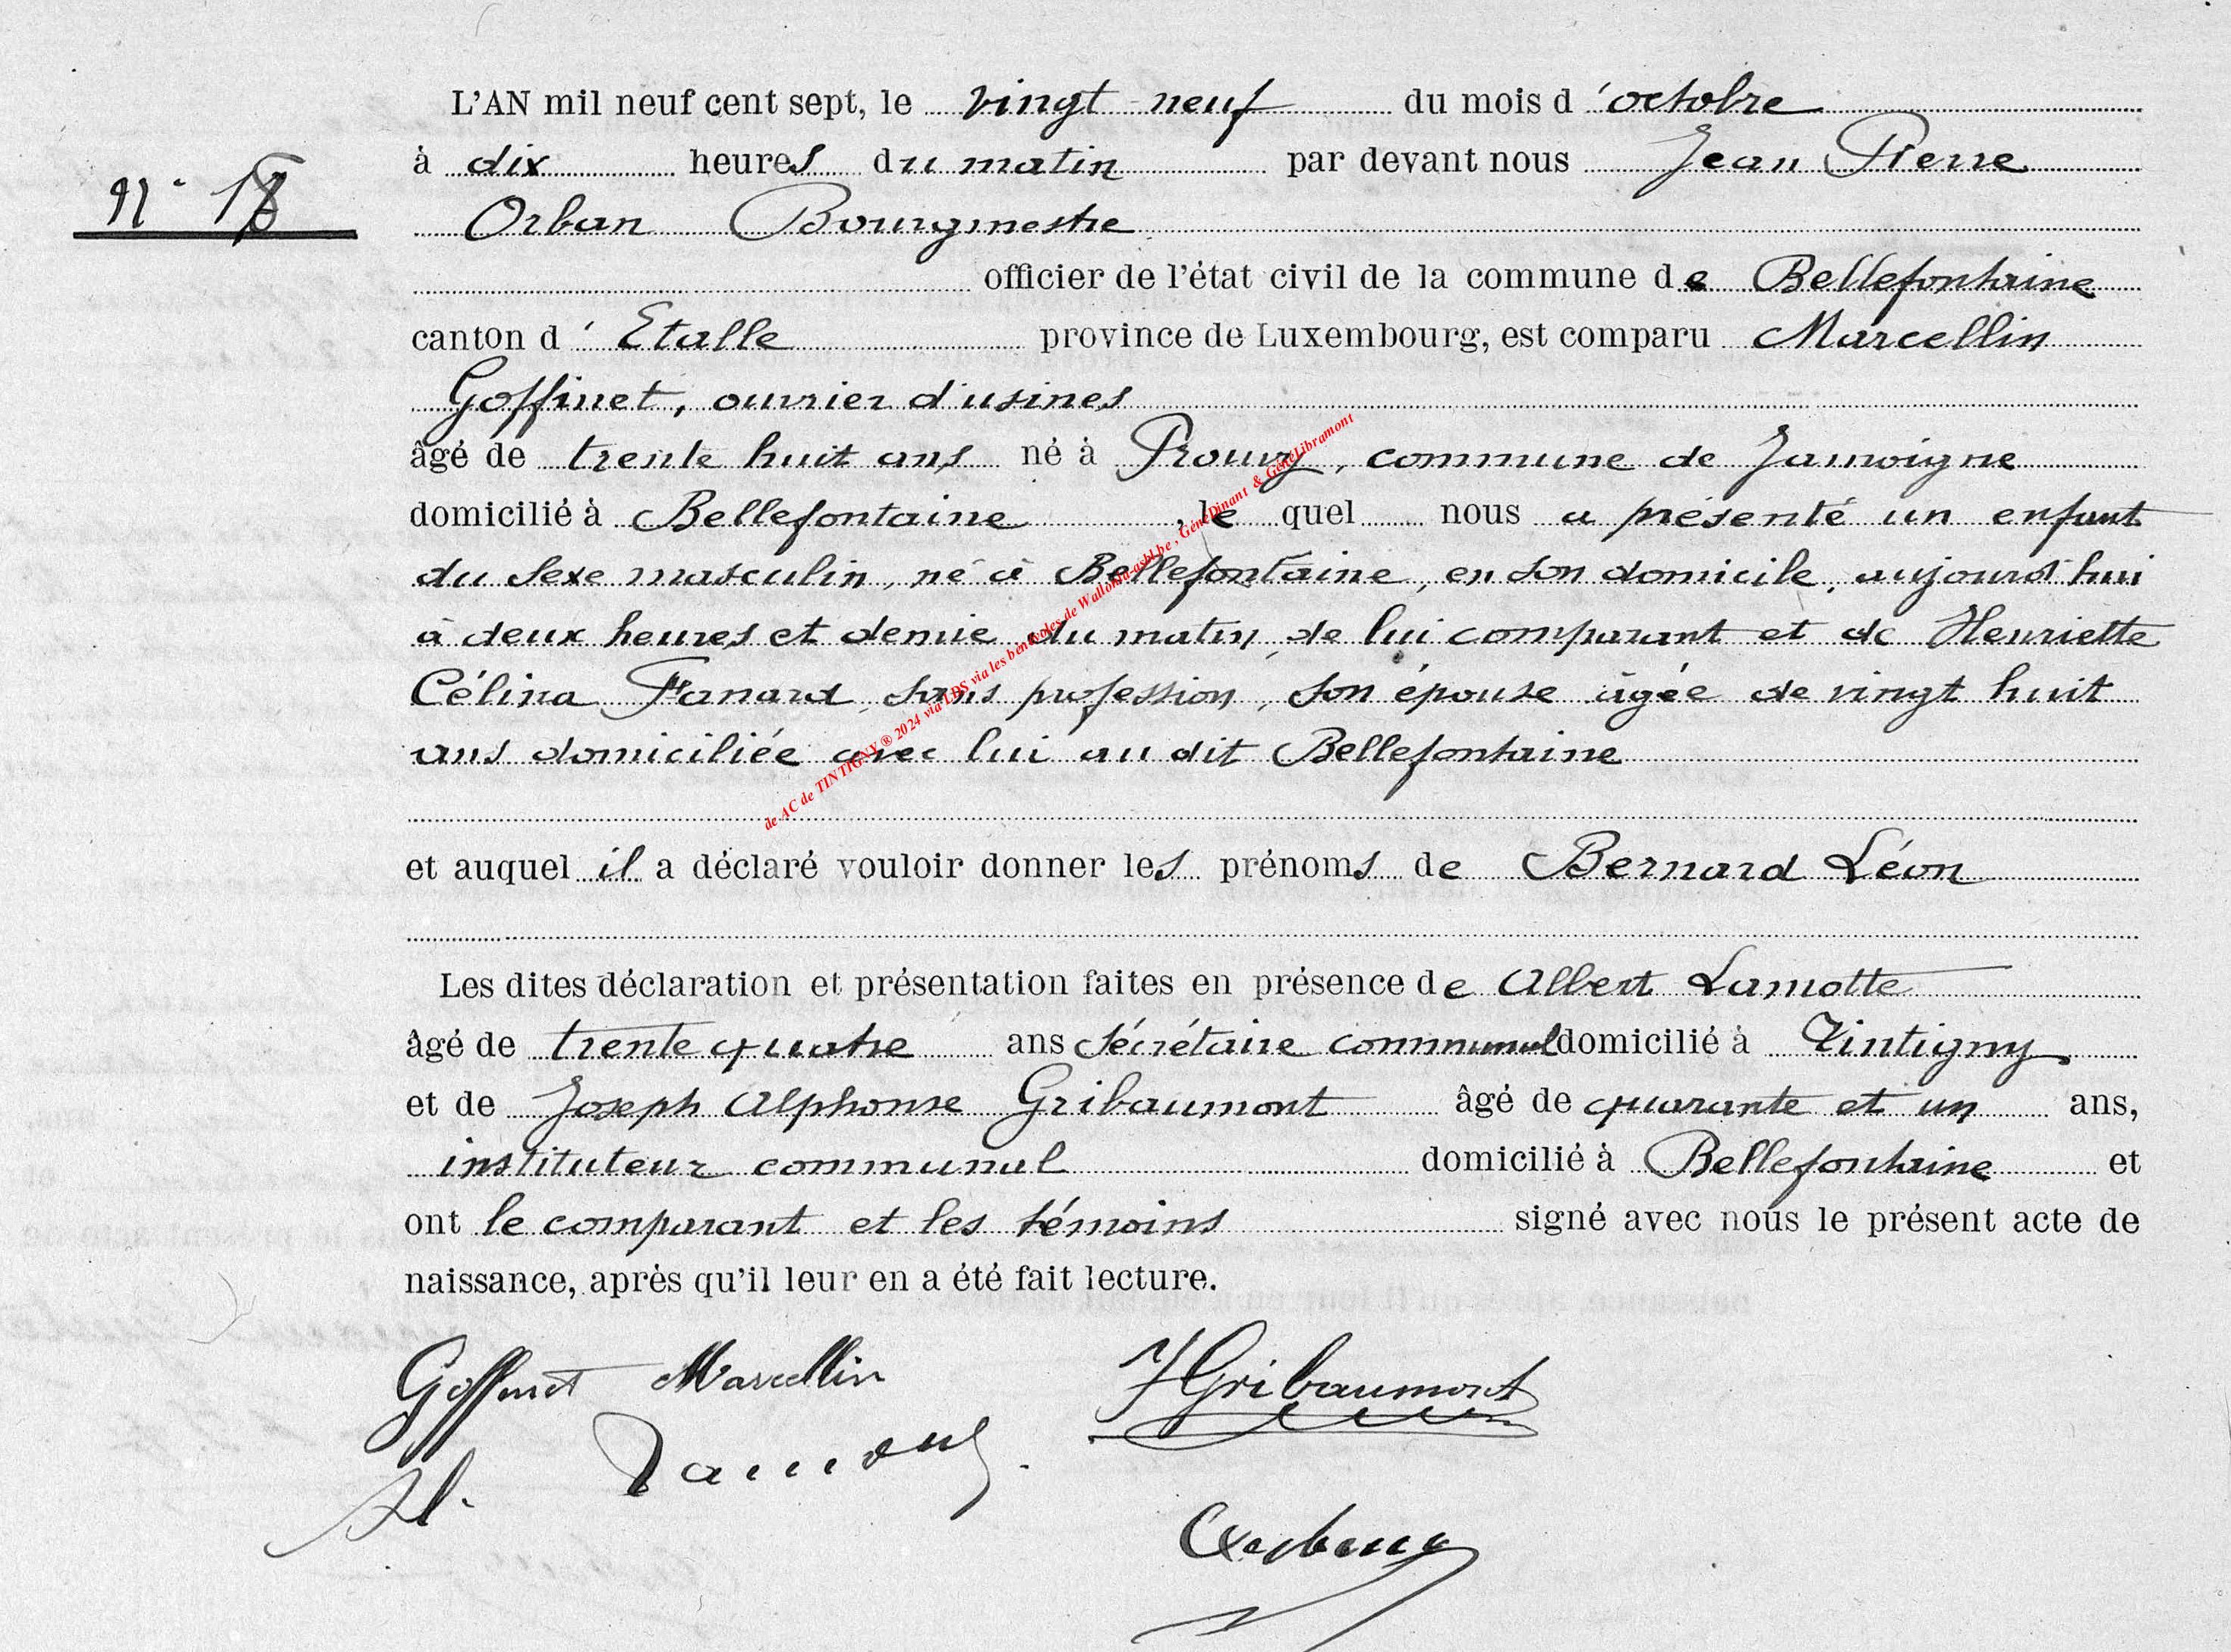 L'AN mil neuf cent sept, le vingt neuf du mois d'octobre
à dix heures du matin par devant nous Jean Pierre
N° 18
Orban Bourgmestre
officier de l'état civil de la commune de Bellefontaine
canton d'Etalle province de Luxembourg, est comparu Marcellin
Goffinet, ouvrier d'usines
âgé de trente huit ans né à Prouvy, commune de Jamoigne
domicilié à Bellefontaine, le quel nous a présenté un enfant
du sexe masculin, né à Bellefontaine, en son domicile, aujourd'hui
à deux heures et demie du matin, de lui comparant et de Henriette
Célina Fanard, sans profession, son épouse âgée de vingt huit
ans domiciliée avec lui au dit Bellefontaine
de AC de TINTIGNY ® 2024 via LDS via les bénévoles de Wallonia-asbl.be, GénéDinant & GénéLibramont
et auquel il a déclaré vouloir donner les prénoms de Bernard Léon
Les dites déclaration et présentation faites en présence de Albert Lamotte
âgé de trente quatre ans sécrétaire communal domicilié à Tintigny
et de Joseph Alphonse Gribaumont âgé de quarante et un ans,
instituteur communal domicilié à Bellefontaine et
ont le comparant et les témoins signé avec nous le présent acte de
naissance, après qu'il leur en a été fait lecture.
Goffinet Marcellin JGribaumont